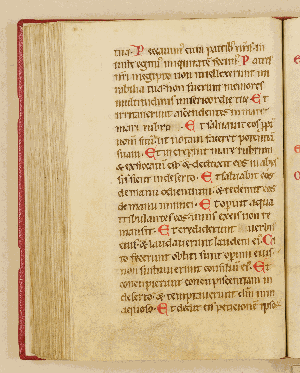 tua. Peccauim' cum patrib' nr̄is in
iuste egim' iniquitatē fecim'. Patres
nr̄i in egypto non intellexerunt mi
rabilia tua: non fuerunt memores
multitudinis misericordie tue. Et
irritauerunt ascendentes in mare
mare rubrū. Et saluauit eos ꝓpt̄
nom̄ suū: ut notam faceret potentiā
suam. Et increpuit mare rubrum
& exiccatū est: & deduxit eos in abys
sis sicut in deserto. Et saluabit eos
de manu odientium: & redemit eos
de manu inimici. Et operuit aqua
tribulantes eos: unus ex eis non re
mansit. Et crediderunt uerbis
eius: & laudauerunt laudem ei'. Ci
to fecerunt obliti sunt operū eius:
non sustinuerunt consiliū ei'. Et
concupierunt concupiscentiam in
deserto: & temptauerunt dm̄ in in
aquoso. Et dedit eis petitionē ipso